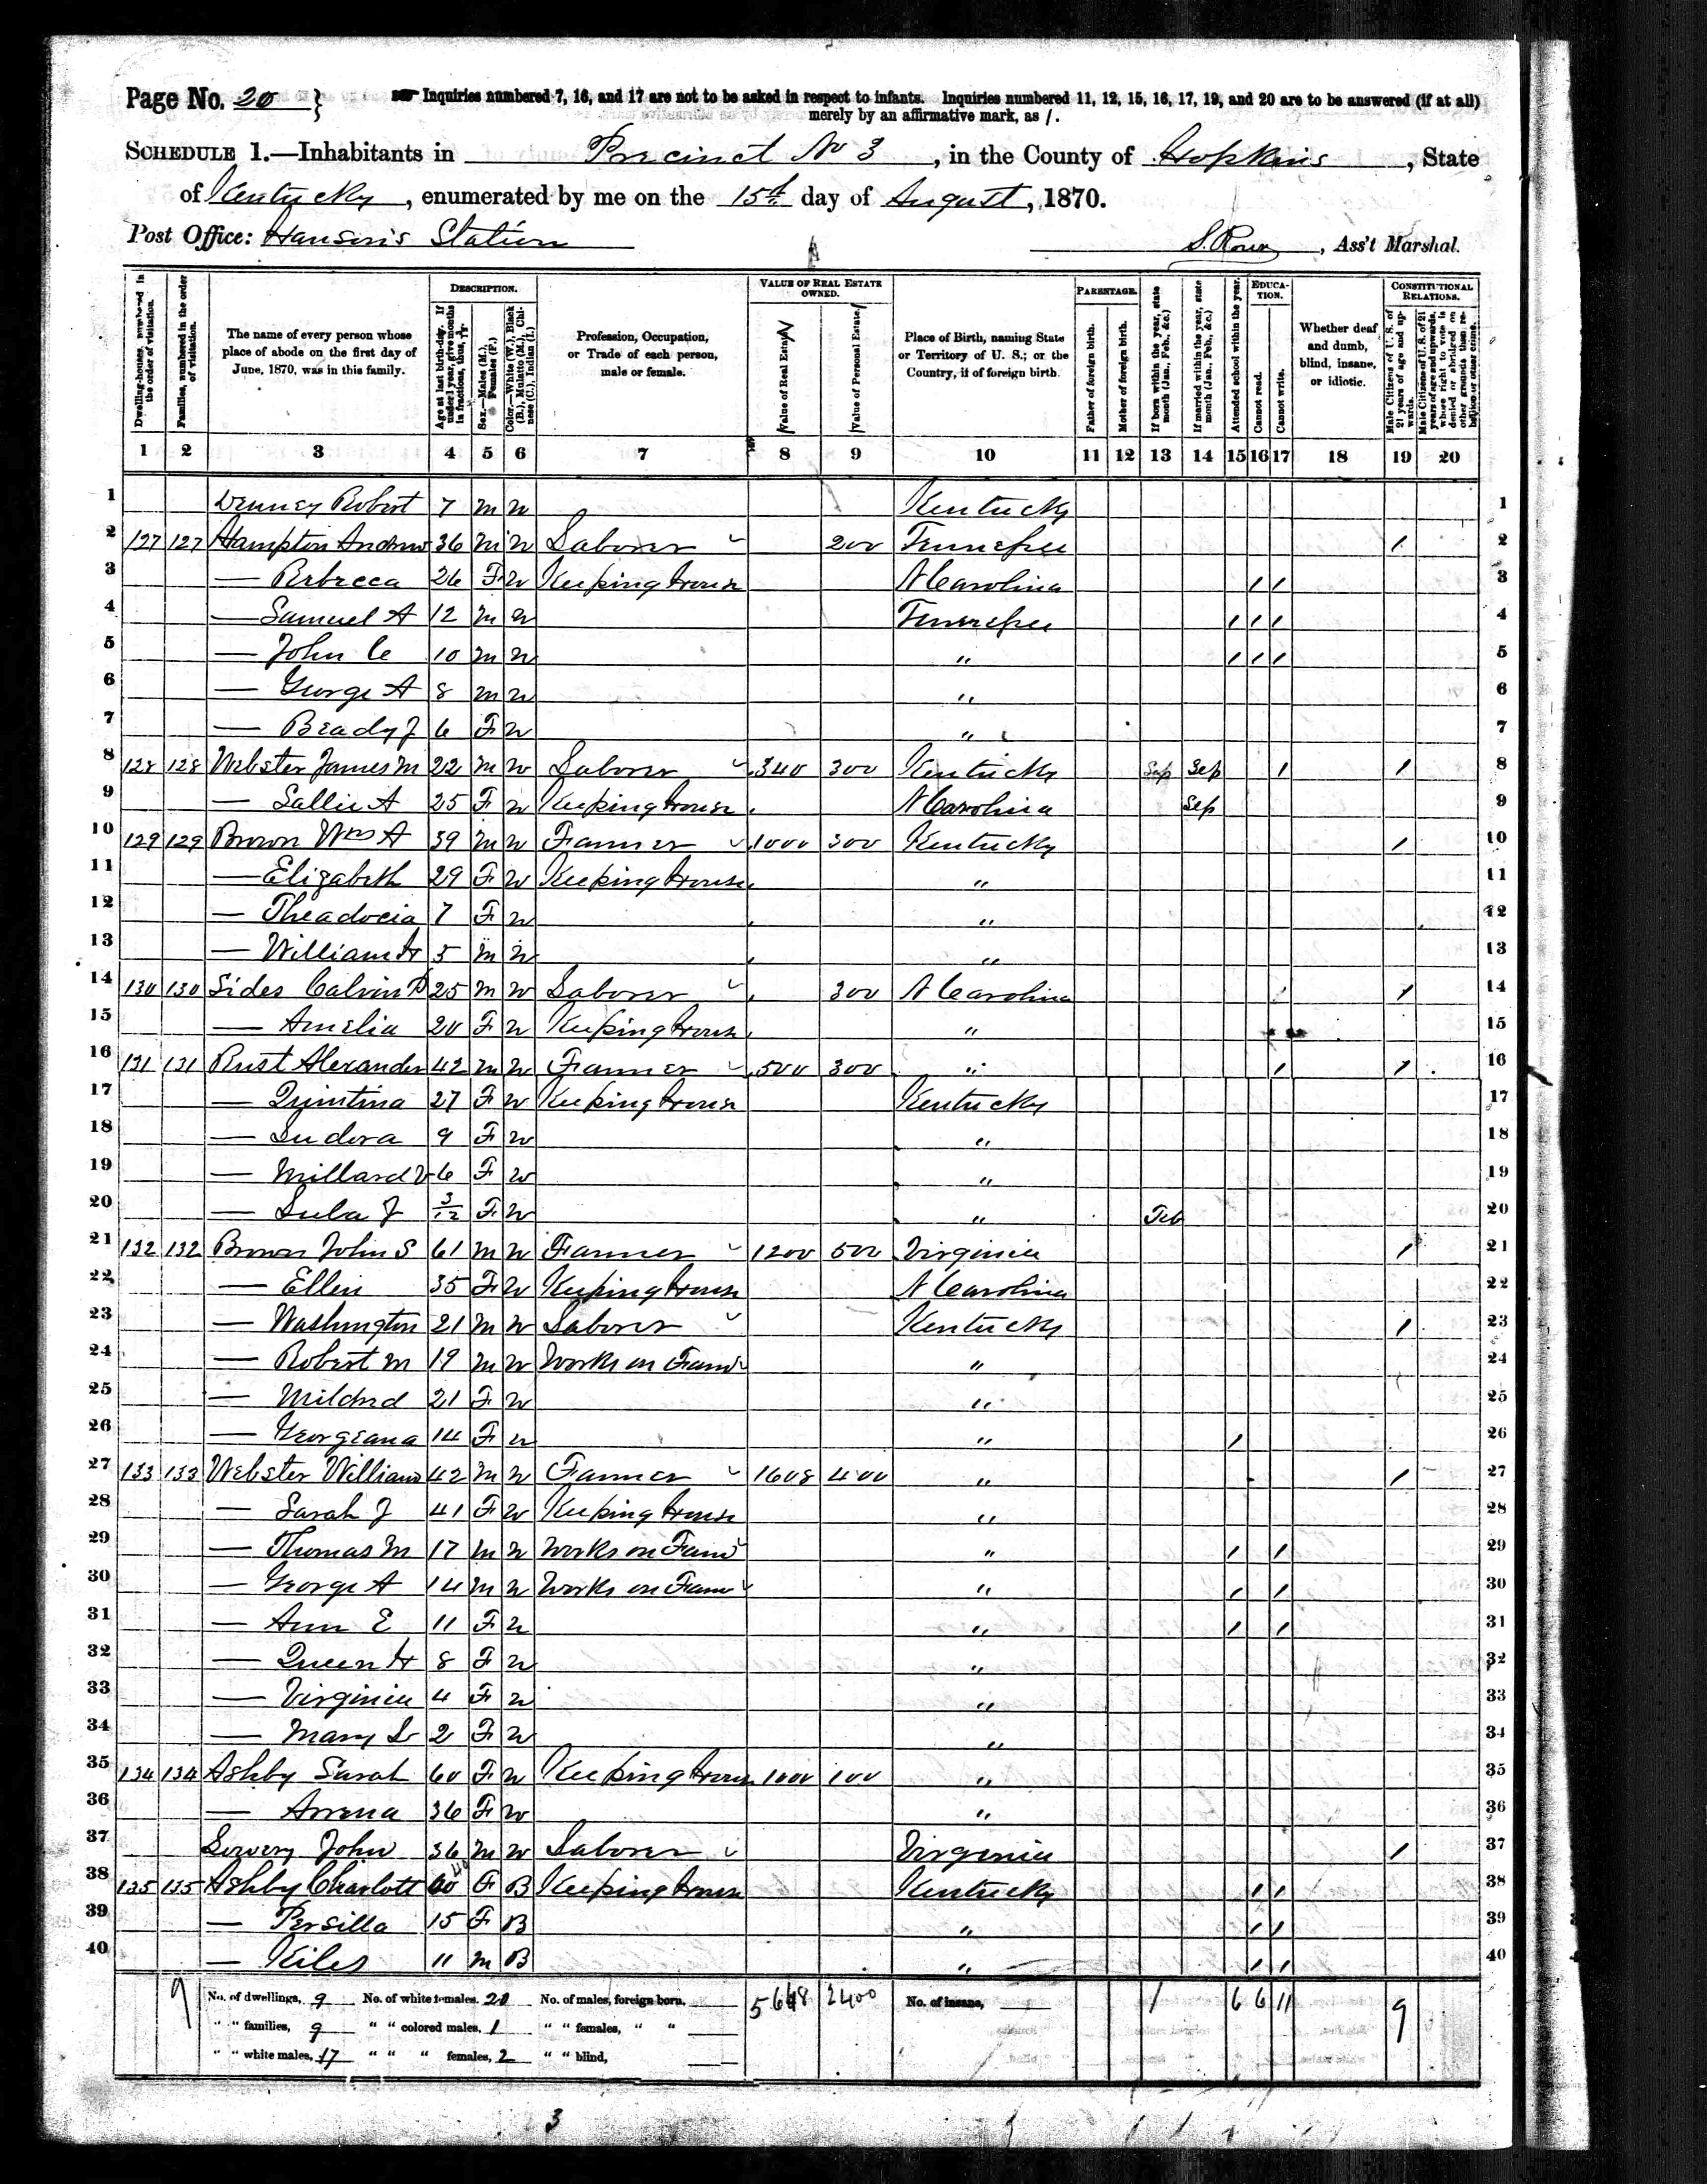 Page No. 20 } Inquiries numbered 7, 16, and 17 are not to be asked in respect to infants. Inquiries numbered 11, 12, 15, 16, 17, 19, and 20 are to be answered (if at all)
merely by an affirmative mark, as /.
SCHEDULE 1.—Inhabitants in Precinct No 3, in the County of Hopkins, State
of Kentucky, enumerated by me on the 15th day of August, 1870.
Post Office: Hanson's Station
, Ass't Marshal.
Dwelling-houses, numbered in the order of visitation.
Families, numbered in the order of visitation.
The name of every person whose place of abode on the first day of June, 1870, was in this family.
DESCRIPTION.
Age at last birth-day. If under 1 year, give months in fractions, thus, 3/12
Sex.—Males (M.), Females (F.)
Color.—White (W.), Black (B.), Mulatto (M.), Chinese (C.), Indian (I.)
Profession, Occupation, or Trade of each person, male or female.
VALUE OF REAL ESTATE OWNED.
Value of Real Estate
Value of Personal Estate
Place of Birth, naming State or Territory of U. S.; or the Country, if of foreign birth.
PARENTAGE.
Father of foreign birth.
Mother of foreign birth.
If born within the year, state month (Jan., Feb., &c.)
If married within the year, state month (Jan., Feb., &c.)
Attended school within the year.
EDUCATION.
Cannot read.
Cannot write.
Whether deaf and dumb, blind, insane, or idiotic.
CONSTITUTIONAL RELATIONS.
Male Citizens of U. S. of 21 years of age and upwards.
Male Citizens of U. S. of 21 years of age and upwards, whose right to vote is denied or abridged on other grounds than rebellion or other crime.
1 2 3 4 5 6 7 8 9 10 11 12 13 14 15 16 17 18 19 20
1 Denney Robert 7 M W Kentucky 1
2 127 127 Hampton Andrew 36 M W Laborer 200 Tennessee / 2
3 — Rebecca 26 F W Keeping house N Carolina / / 3
4 — Samuel A 12 M W Tennessee / / / 4
5 — John C 10 M W " / / / 5
6 — George A 8 M W " 6
7 — Beady J 6 F W " 7
8 128 128 Webster James M 22 M W Laborer 340 300 Kentucky Sep Sep / / 8
9 — Sallie A 25 F W Keeping house N Carolina Sep 9
10 129 129 Brown Wm A 39 M W Farmer 1000 300 Kentucky / 10
11 — Elizabeth 29 F W Keeping house " 11
12 — Theadocia 7 F W " 12
13 — William H 5 M W " 13
14 130 130 Sides Calvin 25 M W Laborer 300 N Carolina / / 14
15 — Amelia 20 F W Keeping house " 15
16 131 131 Rust Alexander 42 M W Farmer 500 300 " / / 16
17 — Quintina 27 F W Keeping house Kentucky 17
18 — Ludora 9 F W " 18
19 — Millard V 6 F W " 19
20 — Lula J 3/12 F W " Feb 20
21 132 132 Brown John S 61 M W Farmer 1200 500 Virginia / 21
22 — Ellen 35 F W Keeping house N Carolina 22
23 — Washington 21 M W Laborer Kentucky / 23
24 — Robert M 19 M W Works on Farm " 24
25 — Mildred 21 F W " 25
26 — Georgeana 14 F W " / 26
27 133 133 Webster William 42 M W Farmer 1608 400 " / 27
28 — Sarah J 41 F W Keeping house " 28
29 — Thomas M 17 M W Works on Farm " / / 29
30 — George A 14 M W Works on Farm " / / 30
31 — Ann E 11 F W " / / 31
32 — Queen H 8 F W " 32
33 — Virginia 4 F W " 33
34 — Mary L 2 F W " 34
35 134 134 Ashby Sarah 60 F W Keeping house 1000 100 " 35
36 — Arrena 36 F W " 36
37 Lowery John 36 M W Laborer Virginia / 37
38 135 135 Ashby Charlott 40 F B Keeping house Kentucky / / 38
39 — Persilla 15 F B " / / 39
40 — Kiles 11 M B " / / 40
9 No. of dwellings, 9 No. of white females, 20 No. of males, foreign born, 5648 2400 No. of insane, 1 6 6 11 9
" " families, 9 " " colored males, 1 " " females, " "
" " white males, 17 " " " females, 2 " " blind,
3